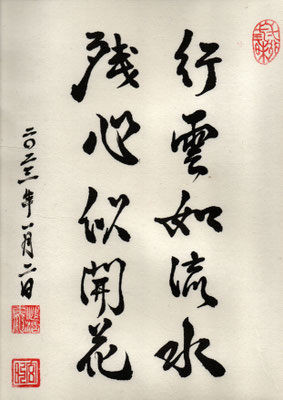 行雲如流水
残心似開花
二〇二三年一月二日